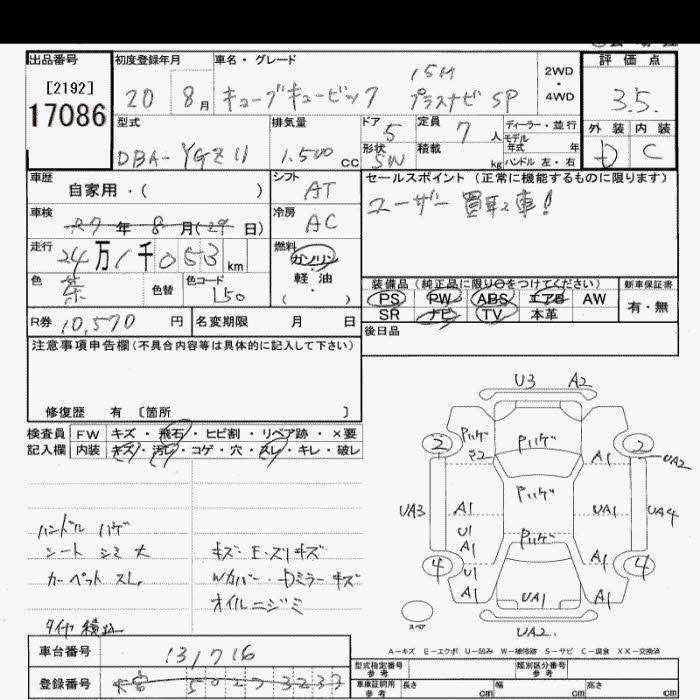 出品番号 初度登録年月 車名・グレード 評価点
[2192]
17086
20 8月 キューブキュービック 15M プラスナビ SP 2WD・4WD 3.5.
型式 排気量 ドア 5 定員 7人 ディーラー・並行 外装 内装
モデル年式 年
DBA-YGZ11 1.500cc 形状 SW 積載 kg ハンドル 左・右 D C
車歴 自家用・( ) シフト AT セールスポイント (正常に機能するものに限ります)
ユーザー買取車!
車検 27年 8月(29日) 冷房 AC
走行 24万1千053km 燃料 ガソリン・軽油・( )
色 茶 色替 色コード L50
装備品 (純正品に限り○をつけてください) 新車保証書
PS PW ABS エアB AW 有・無
SR ナビ TV 本革
R券 10,570円 名変期限 月 日
後日品
注意事項申告欄(不具合内容等は具体的に記入して下さい)
修復歴 有 〔箇所 〕
検査員 FW キズ・飛石・ヒビ割・リペア跡・×要
記入欄 内装 キズ・汚レ・コゲ・穴・スレ・キレ・破レ
ハンドル ハゲ
シート シミ大
カーペット スレ
タイヤ 積込
キズ・E・ズリキズ
Wカバー・Dミラー キズ
オイルニジミ
U3 A2
2 Pハゲ Pハゲ 2
A1 UA2
Pハゲ
UA3 A1 UA1 UA4
U1 Pハゲ
A1 A1
4 U1 4
A1 UA1 A1
スペア UA2.
A-キズ E-エクボ U-凹み W-補修跡 S-サビ C-腐食 XX-交換済
車台番号 131716
登録番号
型式指定番号 参考 類別区分番号 参考
車庫証明用 参考 長さ cm 幅 cm 高さ cm